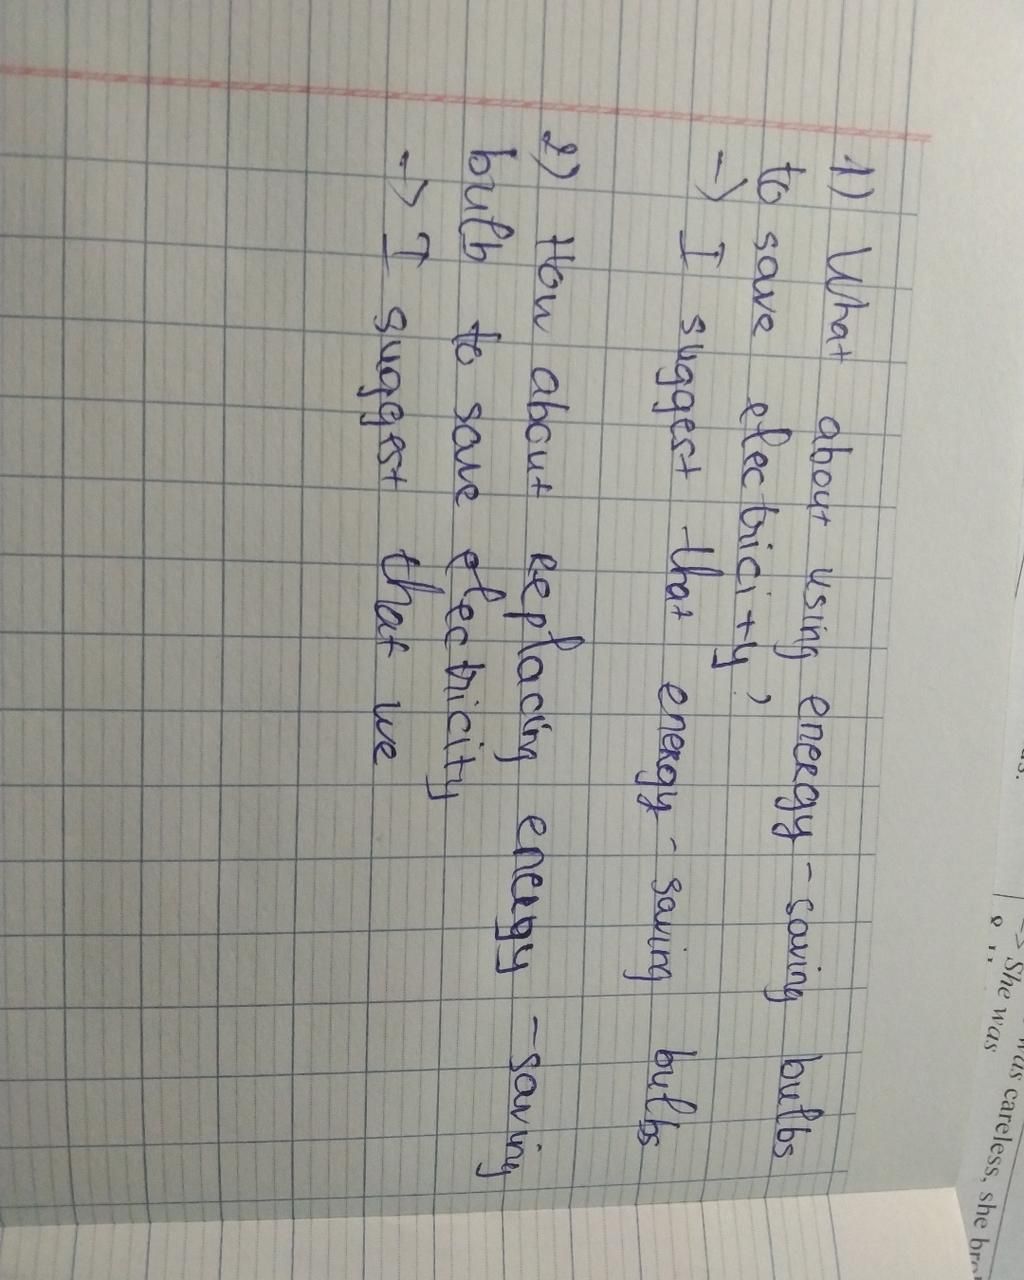 1) What about using energy-saving bulbs
to save electricity,
-> I suggest that energy-saving bulbs
2) How about replacing energy-saving
bulb to save electricity
-> I suggest that we
was careless, she
-> She was